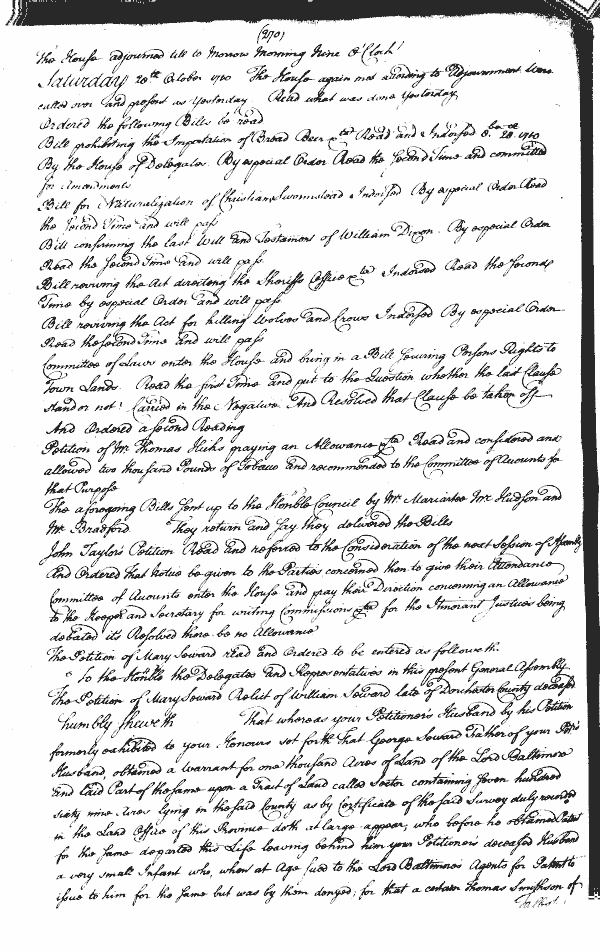 (270)
The House adjourned till to Morrow Morning Nine o'Clock
Saturday 28th October 1710 The House again met according to Adjournment Were
called over and present as Yesterday Read what was done Yesterday
Ordered the following Bills be read
Bill prohibiting the Importation of Bread Beer &ca Read and Indorsed 8ber 28 1710
By the House of Delegates. By especial Order Read the Second Time and committed
for Amendments
Bill for Naturalization of Christian Indorsed By especial Order Read
the Second Time and will pass
Bill confirming the last Will and Testament of William Dixon. By especial Order
Read the Second Time and will pass
Bill reviving the Act directing the Sheriffs Office &ca Indorsed Read the Second
Time by especial Order and will pass
Bill reviving the Act for killing Wolves and Crows Indorsed By especial Order
Read the second Time and will pass
Committee of Laws enter the House and bring in a Bill securing Persons Rights to
Town Lands. Read the first Time and put to the Question whether the last Clause
stand or not? Carried in the Negative And Resolved that Clause be taken off
And Ordered a second Reading
Petition of Mr Thomas Hicks praying an Allowance &ca Read and considered and
allowed two thousand Pounds of Tobacco and recommended to the Committee of Accounts for
that Purpose
The aforegoing Bills sent up to the Honble Council by Mr Mariartee Mr Hudson and
Mr Bradford They return and say they delivered the Bills
John Taylor's Petition Read and referred to the Consideration of the next Session of Assembly
And Ordered That Notice be given to the Parties concerned then to give their Attendance
Committee of Accounts enter the House and pray their Direction concerning an Allowance
to the Keeper and Secretary for writing Commissions &ca for the Itinerant Justices being
debated it's Resolved there be no Allowance
The Petition of Mary Seward read and Ordered to be entered as followeth.
"To the Honble the Delegates and Representatives in this present General Assembly
The Petition of Mary Seward Relict of William Seward late of Dorchester County deceased
humbly Sheweth That whereas your Petitioner's Husband by his Petition
formerly exhibited to your Honours set forth That George Seward Father of your Petrs
Husband, obtained a Warrant for one thousand Acres of Land of the Lord Baltimore
and laid Part of the same upon a Tract of Land called Sector containing seven hundred
sixty nine Acres lying in the said County as by Certificate of the said Survey duly recorded
in the Land Office of this Province doth at large appear, who before he obtained Patent
for the same departed this Life leaving behind him your Petitioner's deceased Husband
a very small Infant who, when at Age sued to the Lord Baltimore's Agents for Patent to
issue to him for the same but was by them denyed; for that a certain Thomas Smithson of